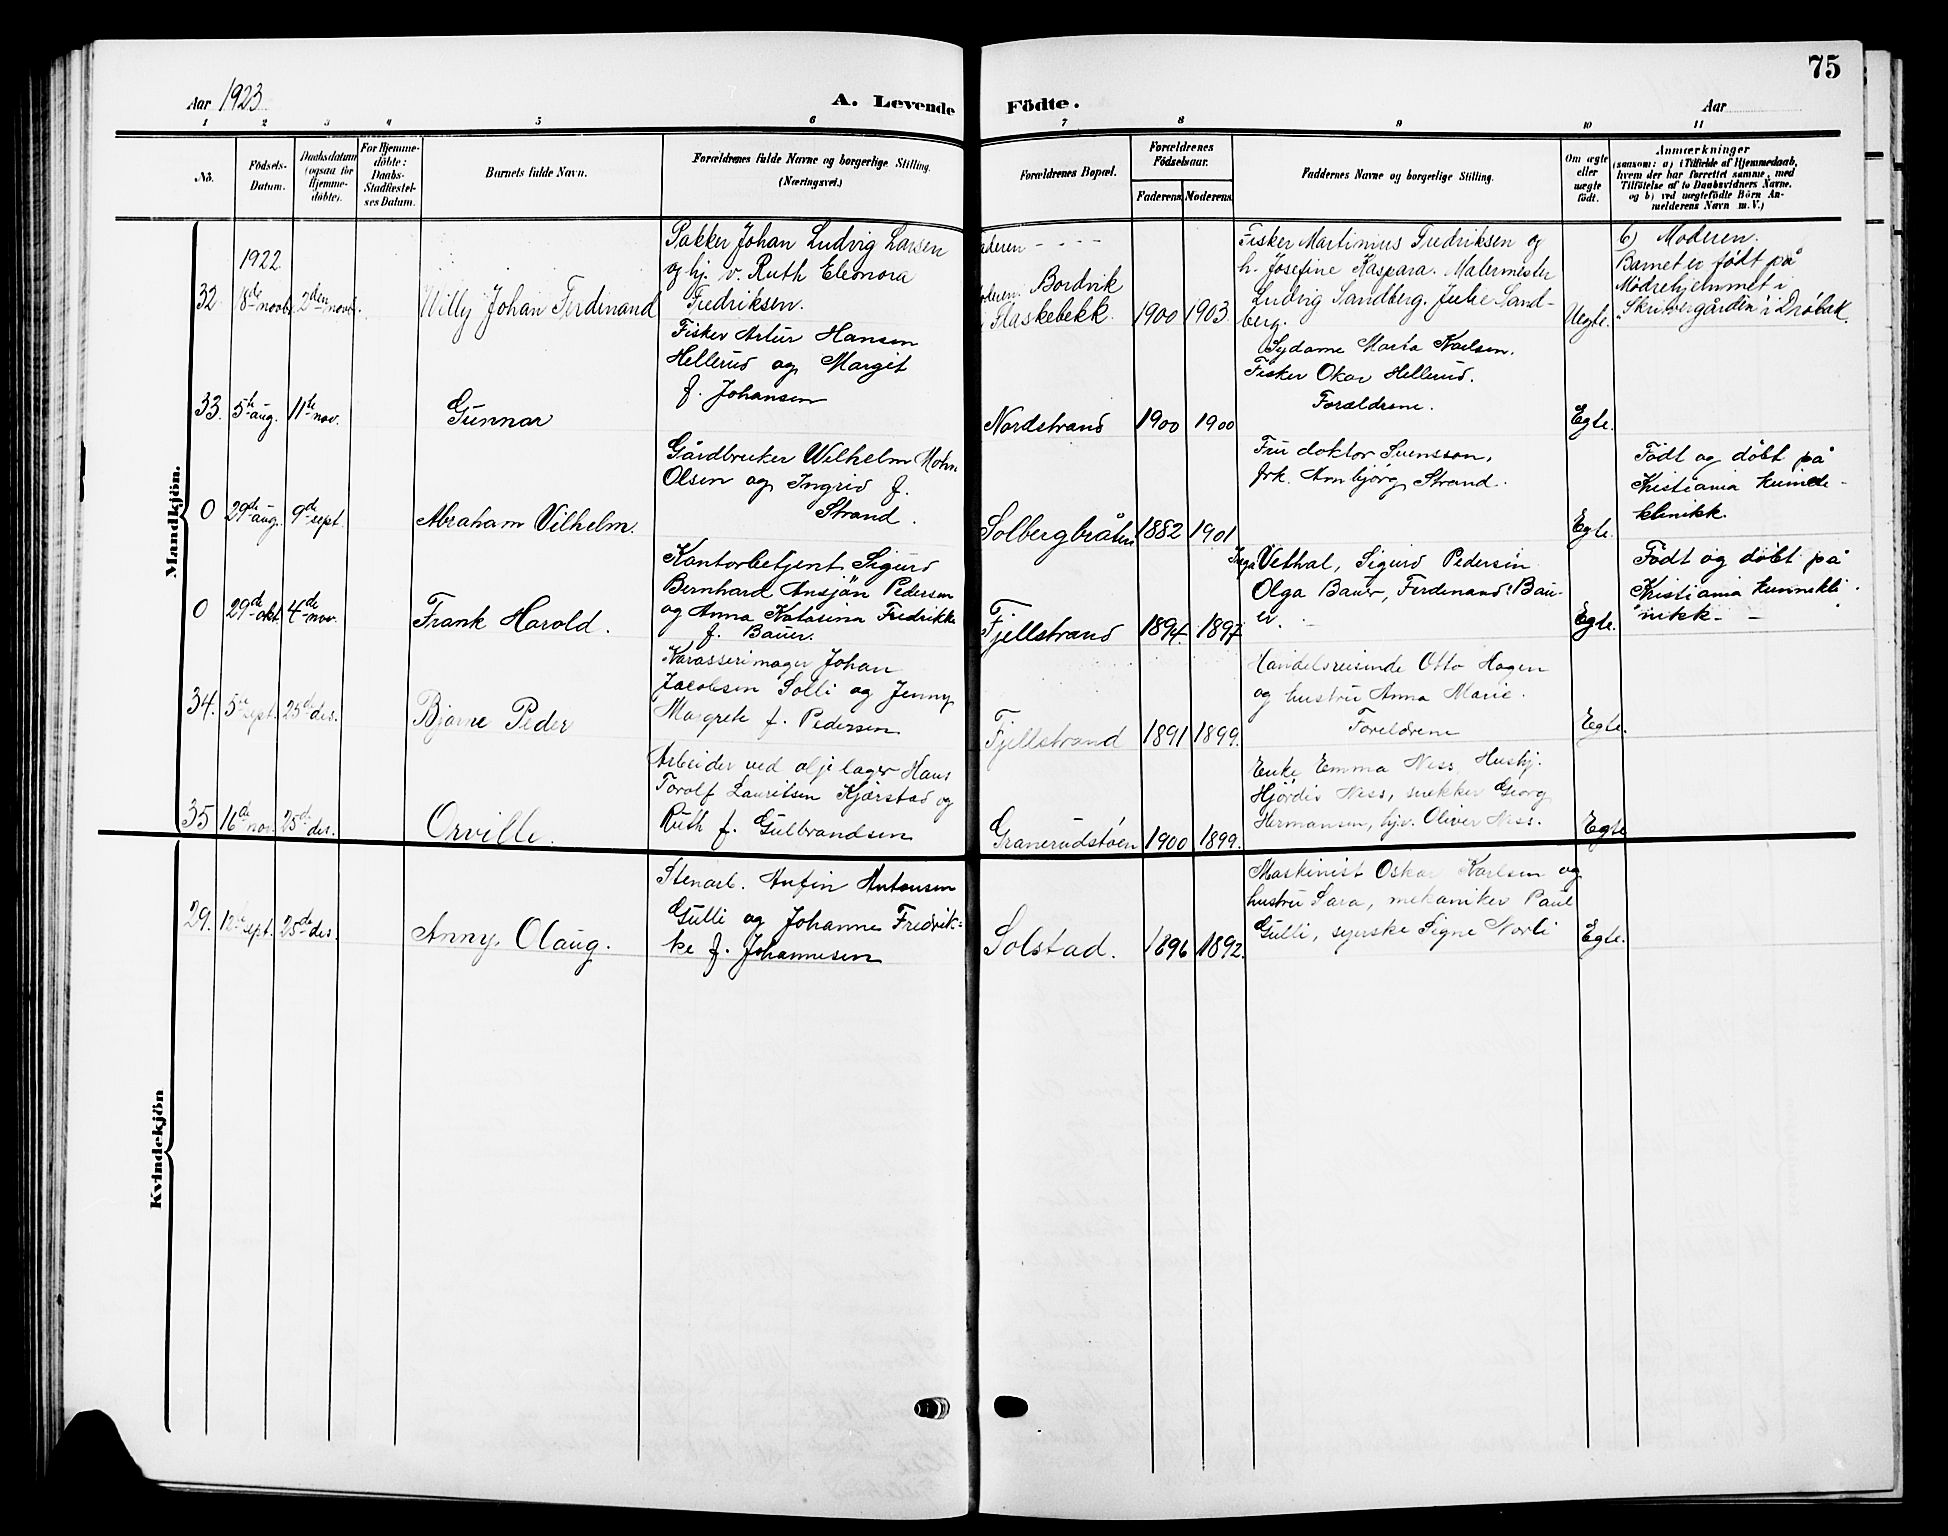 75
Aar 1923
A. Levende Födte.
Aar
1 2 3 4 5 6 7 8 9 10 11
No.
Födsels-Datum.
Daabsdatum (ogsaa for Hjemme-döbte).
For Hjemme-döbte: Daabs-Stadfæstel-ses Datum.
Barnets fulde Navn.
Forældrenes fulde Navne og borgerlige Stilling. (Næringsvei.)
Forældrenes Bopæl.
Forældrenes Födselsaar.
Faderens Moderens
Faddernes Navne og borgerlige Stilling.
Om ægte eller uægte født.
Anmærkninger
(saasom: a) i Tilfælde af Hjemmedaab, hvem der har forrettet samme, med Tilföielse af to Daabsvidners Navne. og b) ved uægtefödte Börn An-melderens Navn m. V.)
Mandkjön.
1922
32 18de novb. 2den novb.
Willy Johan Ferdinand
Pakker Johan Ludvig Larsen
og hj. v. Ruth Eleonora
Fredriksen.
aderen - - - -
oderen: Bordvik
i Flaskebekk.
1900 1903.
Fisker Martinius Fredriksen og
h. Josefine Kaspara. Malermester
Ludvig Sandberg. Julie Sand-
berg.
Uegte.
b) Moderen.
Barnet er født på
Mødrehjemmet i
"Skrivergården" i Drøbak.
33. 5te aug. 11te nov.
Gunnar
Fisker Artur Hansen
Hellerud og Margit
f. Johansen
Nordstrand
1900 1900
Sydame Marta Karlsen.
Fisker Oskar Hellerud.
Forældrene.
Egte.
0 29de aug. 9de sept.
Abraham Vilhelm.
Gårdbruker Wilhelm Mohn
Olsen og Ingrid f.
Strand.
Solbergbråten
1882 1901
Fru doktor Svensson,
frk. Arnbjørg Strand.
Egte.
Født og døbt på
Kristiania kvinde-
klinikk.
0 29de okt. 4de nov.
Frank Harold.
Kontorbetjent Sigurd
Bernhard Ansjön Pedersen
og Anna Katarina Fredrikke
f. Bauer.
Fjellstrand
1894. 1897
Inga Vethal, Sigurd Pedersen
Olga Bauer, Ferdinand Bau-
er.
Egte.
Født og døbt på
Kristiania kvinnekli-
nikk - -
34. 5te sept. 25de des.
Bjarne Peder
Karosserimager Johan
Jacobsen Solli og Jenny
Margrete f. Pedersen
Fjellstrand
1891 1899.
Handelsreisende Otto Hagen
og hustru Anna Marie.
Foreldrene
Egte.
35 16de nov. 25de des.
Orville.
Arbeider ved oljelager Hans
Torolf Lauritsen Kjærstad og
Ruth f. Gulbrandsen
Granerudstøen
1900 1899.
Enke Emma Ness, Hushj.
Hjørdis Ness, snekker Georg
Hermansen, hjv. Oliver Ness.
Egte
Kvindekjön
29. 12te sept. 25de des.
Anny Olaug.
Stenarb. Anfin Antonsen
Gulli og Johanne Fredrik-
ke f. Johannesen
Solstad.
1896 1892.
Maskinist Oskar Karlsen og
hustru Sara, mekaniker Paul
Gulli, syerske Signe Norli
Egte.